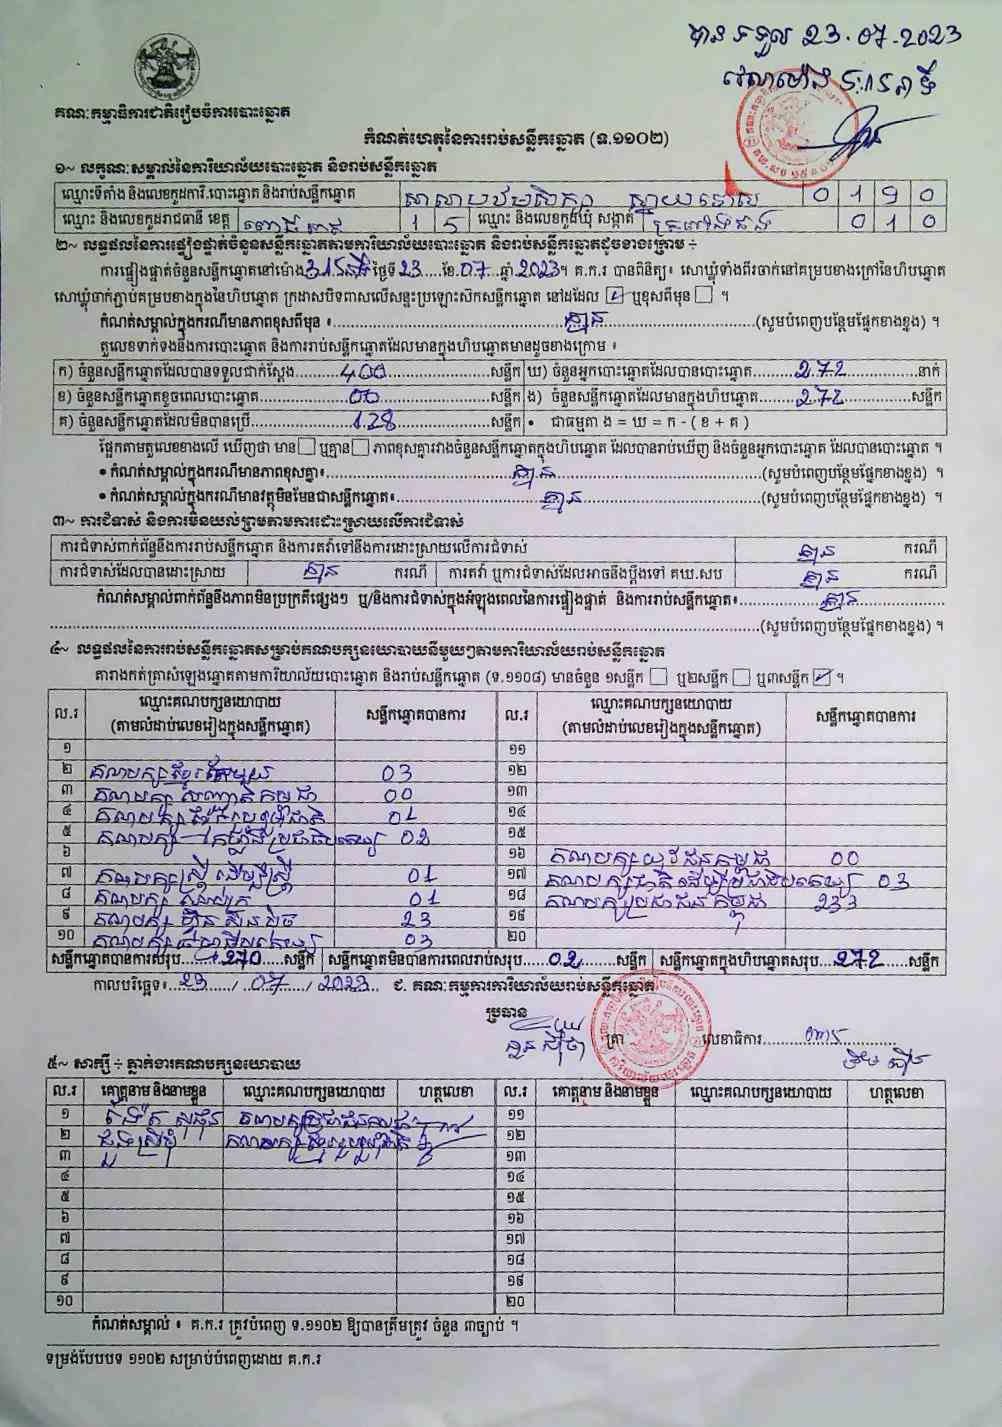 បានទទួល 23.07.2023
វេលាម៉ោង 5:15 នាទី
គណៈកម្មាធិការជាតិរៀបចំការបោះឆ្នោត
កំណត់ហេតុនៃការរាប់សន្លឹកឆ្នោត (ទ.១១០២)
១~ លក្ខណៈសម្គាល់នៃការិយាល័យបោះឆ្នោត និងរាប់សន្លឹកឆ្នោត
ឈ្មោះទីតាំង និងលេខកូដការិ.បោះឆ្នោត និងរាប់សន្លឹកឆ្នោត សាលាបឋមសិក្សា ស្វាយ 0 1 9 0
ឈ្មោះ និងលេខកូដរាជធានី ខេត្ត ពោធិ៍សាត់ 1 5 ឈ្មោះ និងលេខកូដឃុំ សង្កាត់ 0 1 0
២~ លទ្ធផលនៃការផ្ទៀងផ្ទាត់ចំនួនសន្លឹកឆ្នោតតាមការិយាល័យបោះឆ្នោត និងរាប់សន្លឹកឆ្នោតដូចខាងក្រោម ÷
ការផ្ទៀងផ្ទាត់ចំនួនសន្លឹកឆ្នោតនៅម៉ោង 3:15 នាទី ថ្ងៃទី 23 ....ខែ. 07 ....ឆ្នាំ 2023 ។ គ.ក.រ បានពិនិត្យ៖ សោឃ្លុំទាំងពីរចាក់នៅគម្របខាងក្រៅនៃហិបឆ្នោត
សោឃ្លុំចាក់ភ្ជាប់គម្របខាងក្នុងនៃហិបឆ្នោត ក្រដាសបិទពាសលើសន្ទះប្រឡោះស៊កសន្លឹកឆ្នោត នៅដដែល ☑ ឬខុសពីមុន ☐ ។
កំណត់សម្គាល់ក្នុងករណីមានភាពខុសពីមុន ៖ គ្មាន (សូមបំពេញបន្ថែមផ្នែកខាងខ្នង) ។
តួលេខទាក់ទងនឹងការបោះឆ្នោត និងការរាប់សន្លឹកឆ្នោតដែលមានក្នុងហិបឆ្នោតមានដូចខាងក្រោម ៖
ក) ចំនួនសន្លឹកឆ្នោតដែលបានទទួលជាក់ស្តែង 400 សន្លឹក ឃ) ចំនួនអ្នកបោះឆ្នោតដែលបានបោះឆ្នោត 272 នាក់
ខ) ចំនួនសន្លឹកឆ្នោតខូចពេលបោះឆ្នោត 00 សន្លឹក ង) ចំនួនសន្លឹកឆ្នោតដែលមានក្នុងហិបឆ្នោត 272 សន្លឹក
គ) ចំនួនសន្លឹកឆ្នោតដែលមិនបានប្រើ 128 សន្លឹក • ជាធម្មតា ង = ឃ = ក - ( ខ + គ )
ផ្អែកតាមតួលេខខាងលើ ឃើញថា មាន ☐ ឬគ្មាន ☐ ភាពខុសគ្នារវាងចំនួនសន្លឹកឆ្នោតក្នុងហិបឆ្នោត ដែលបានរាប់ឃើញ និងចំនួនអ្នកបោះឆ្នោត ដែលបានបោះឆ្នោត ។
• កំណត់សម្គាល់ក្នុងករណីមានភាពខុសគ្នា៖ គ្មាន (សូមបំពេញបន្ថែមផ្នែកខាងខ្នង) ។
• កំណត់សម្គាល់ក្នុងករណីមានវត្ថុមិនមែនជាសន្លឹកឆ្នោត៖ គ្មាន (សូមបំពេញបន្ថែមផ្នែកខាងខ្នង) ។
៣~ ការជំទាស់ និងការមិនយល់ព្រមតាមការដោះស្រាយលើការជំទាស់
ការជំទាស់ពាក់ព័ន្ធនឹងការរាប់សន្លឹកឆ្នោត និងការតវ៉ាទៅនឹងការដោះស្រាយលើការជំទាស់ គ្មាន ករណី
ការជំទាស់ដែលបានដោះស្រាយ គ្មាន ករណី ការតវ៉ា ឬការជំទាស់ដែលអាចនឹងប្តឹងទៅ គឃ.សប គ្មាន ករណី
កំណត់សម្គាល់ពាក់ព័ន្ធនឹងភាពមិនប្រក្រតីផ្សេងៗ ឬ/និងការជំទាស់ក្នុងអំឡុងពេលនៃការផ្ទៀងផ្ទាត់ និងការរាប់សន្លឹកឆ្នោត៖ គ្មាន
(សូមបំពេញបន្ថែមផ្នែកខាងខ្នង) ។
៤~ លទ្ធផលនៃការរាប់សន្លឹកឆ្នោតសម្រាប់គណបក្សនយោបាយនីមួយៗតាមការិយាល័យរាប់សន្លឹកឆ្នោត
តារាងកត់ត្រាសំឡេងឆ្នោតតាមការិយាល័យបោះឆ្នោត និងរាប់សន្លឹកឆ្នោត (ទ.១១០៨) មានចំនួន ១សន្លឹក ☐ ឬ២សន្លឹក ☐ ឬ៣សន្លឹក ☑ ។
ល.រ ឈ្មោះគណបក្សនយោបាយ (តាមលំដាប់លេខរៀងក្នុងសន្លឹកឆ្នោត) សន្លឹកឆ្នោតបានការ ល.រ ឈ្មោះគណបក្សនយោបាយ (តាមលំដាប់លេខរៀងក្នុងសន្លឹកឆ្នោត) សន្លឹកឆ្នោតបានការ
១ ១១
២ គណបក្សខ្មែរតែមួយ 03 ១២
៣ គណបក្ស កម្ពុជា 00 ១៣
៤ គណបក្ស ជាតិ 01 ១៤
៥ គណបក្ស ប្រជាធិបតេយ្យ 02 ១៥
៦ ១៦ គណបក្សយុវជនកម្ពុជា 00
៧ គណបក្សស្ត្រីដើម្បីស្ត្រី 01 ១៧ គណបក្ស ប្រជាធិបតេយ្យ 03
៨ គណបក្ស 01 ១៨ គណបក្សប្រជាជនកម្ពុជា 233
៩ គណបក្ស ហ៊្វុនស៊ិនប៉ិច 23 ១៩
១០ គណបក្ស ប្រជាធិបតេយ្យ 03 ២០
សន្លឹកឆ្នោតបានការសរុប 270 សន្លឹក សន្លឹកឆ្នោតមិនបានការពេលរាប់សរុប 02 សន្លឹក សន្លឹកឆ្នោតក្នុងហិបឆ្នោតសរុប 272 សន្លឹក
កាលបរិច្ឆេទ៖ 23 / 07 / 2023 ជ. គណៈកម្មការការិយាល័យរាប់សន្លឹកឆ្នោត
ប្រធាន
ត្រា លេខាធិការ
៥~ សាក្សី ÷ ភ្នាក់ងារគណបក្សនយោបាយ
ល.រ គោត្តនាម និងនាមខ្លួន ឈ្មោះគណបក្សនយោបាយ ហត្ថលេខា ល.រ គោត្តនាម និងនាមខ្លួន ឈ្មោះគណបក្សនយោបាយ ហត្ថលេខា
១ គណបក្សប្រជាជនកម្ពុជា ១១
២ គណបក្ស ១២
៣ ១៣
៤ ១៤
៥ ១៥
៦ ១៦
៧ ១៧
៨ ១៨
៩ ១៩
១០ ២០
កំណត់សម្គាល់ ៖ គ.ក.រ ត្រូវបំពេញ ទ.១១០២ ឱ្យបានត្រឹមត្រូវ ចំនួន ៣ច្បាប់ ។
ទម្រង់បែបបទ ១១០២ សម្រាប់បំពេញដោយ គ.ក.រ